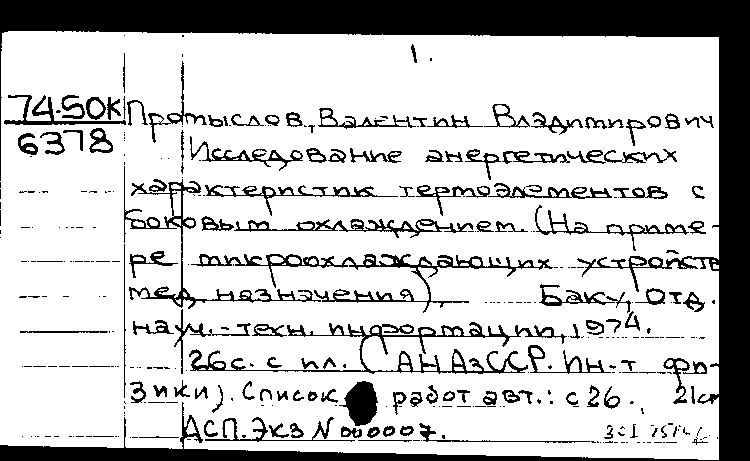 1.
74-50к
6378
Промыслов, Валентин Владимирович
Исследование энергетических
характеристик термоэлементов с
боковым охлаждением. (На приме-
ре микроохлаждающих устройств
мед. назначения). Баку, Отд.
науч.-техн. информации, 1974.
26с. с ил. (АН АзССР. Ин-т фи-
зики). Список работ авт.: с 26. 21см
АСП. ЭКЗ N 000007.